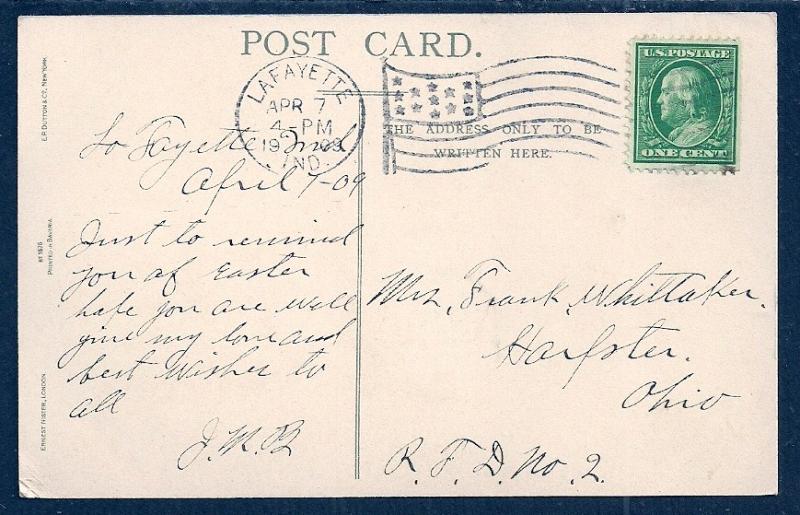 POST CARD.
LAFAYETTE
APR 7
4-PM
1909
IND.
U.S. POSTAGE
ONE CENT
THE ADDRESS ONLY TO BE
WRITTEN HERE.
E.P. DUTTON & CO. NEW YORK.
No 1876
PRINTED IN BAVARIA
ERNEST NISTER, LONDON
La Fayette Ind
April 7-09
Just to remind
you of Easter
hope you are well
give my love and
best wishes to
all
J.M.B
Mrs, Frank, Whittaker.
Harpster.
Ohio
R.F.D. No. 2.